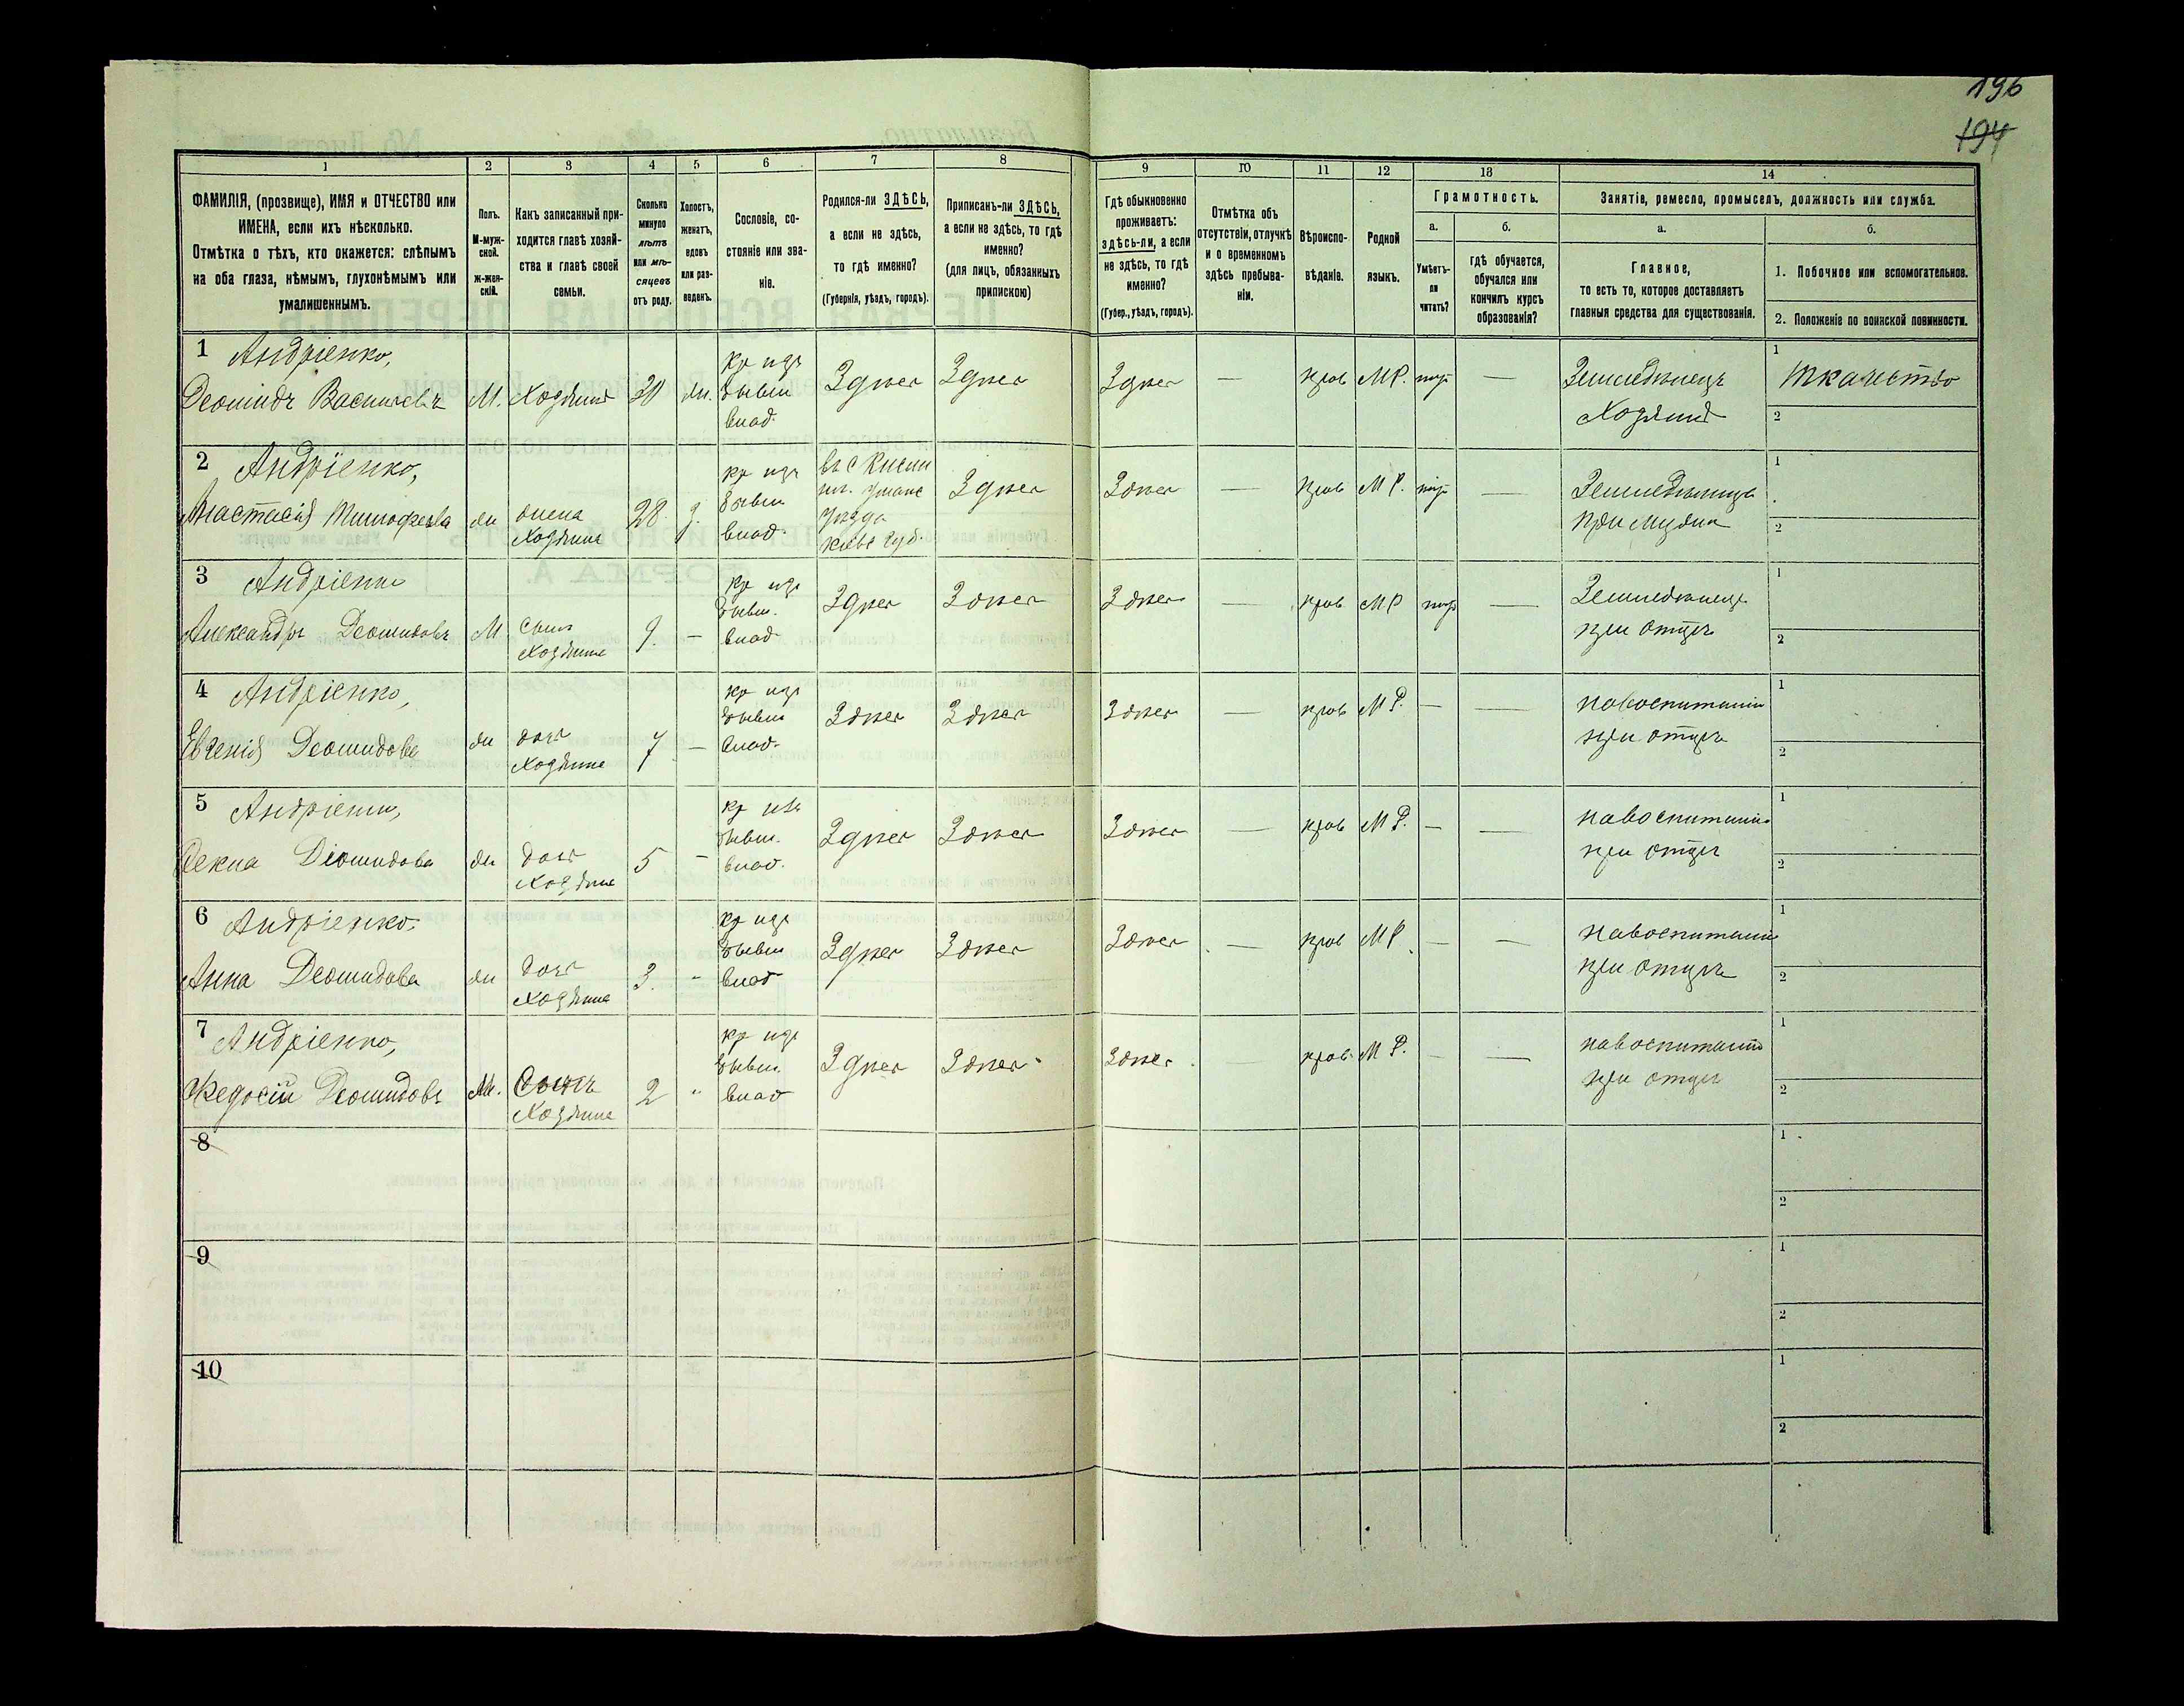 196
194
1
2
3
4
5
6
7
8
9
10
11
12
13
14
ФАМИЛІЯ, (прозвище), ИМЯ и ОТЧЕСТВО или
ИМЕНА, если ихъ нѣсколько.
Отмѣтка о тѣхъ, кто окажется: слѣпымъ
на оба глаза, нѣмымъ, глухонѣмымъ или
умалишеннымъ.
Полъ.
М-муж-
ской.
Ж-жен-
скій.
Какъ записанный при-
ходится главѣ хозяй-
ства и главѣ своей
семьи.
Сколько
минуло
лѣтъ
или мѣ-
сяцевъ
отъ роду.
Холостъ,
женатъ,
вдовъ
или раз-
веденъ.
Сословіе, со-
стояніе или зва-
ніе.
Родился-ли ЗДѢСЬ,
а если не здѣсь,
то гдѣ именно?
(Губернія, уѣздъ, городъ).
Приписанъ-ли ЗДѢСЬ,
а если не здѣсь, то гдѣ
именно?
(для лицъ, обязанныхъ
припискою)
Гдѣ обыкновенно
проживаетъ:
здѣсь-ли, а если
не здѣсь, то гдѣ
именно?
(Губер., уѣздъ, городъ).
Отмѣтка объ
отсутствіи, отлучкѣ
и о временномъ
здѣсь пребыва-
ніи.
Вѣроиспо-
вѣданіе.
Родной
языкъ.
Грамотность.
а.
Умѣетъ-
ли
читать?
б.
гдѣ обучается,
обучался или
кончилъ курсъ
образованія?
Занятіе, ремесло, промыселъ, должность или служба.
а.
Главное,
то есть то, которое доставляетъ
главныя средства для существованія.
б.
1. Побочное или вспомогательное.
2. Положеніе по воинской повинности.
1 Андріенко,
Деомидъ Васильевъ М. Хозяинъ 30 жн.
кр изъ
бывш
влад.
Здѣсь Здѣсь Здѣсь — прав М Р. —
Земледѣлецъ
Хозяинъ
1 Ткачество
2
2 Андріенко,
Анастасія жн жена
Хозяина 28 з.
кр изъ
бывш
влад.
уѣзда
Кіев губ.
Здѣсь Здѣсь — Прав М Р. —
1
2
3 Андріенко
Александръ Деомидовъ М сынъ
Хозяина 9. —
кр изъ
бывш.
влад
Здѣсь Здѣсь Здѣсь — прав М Р —
Земледѣлецъ
при отцѣ
1
2
4 Андріенко,
Евгенія Деомидова жн дочь
Хозяина 7 —
кр изъ
бывш
влад.
Здѣсь Здѣсь Здѣсь — прав М Р. — —
на воспитаніи
при отцѣ
1
2
5 Андріенко,
Фекла Деомидова жн дочь
Хозяина 5 —
кр изъ
бывш.
влад.
Здѣсь Здѣсь Здѣсь — прав М Р. — —
на воспитаніи
при отцѣ
1
2
6 Андріенко.
Анна Деомидова жн дочь
Хозяина 3. -
кр изъ
бывш
влад
Здѣсь Здѣсь Здѣсь — прав М Р. — —
на воспитаніи
при отцѣ
1
2
7 Андріенко,
Федосій Деомидовъ М. Сынъ
Хозяина 2 "
кр изъ
бывш
влад
Здѣсь Здѣсь Здѣсь прав. М Р. — —
на воспитаніи
при отцѣ
1
2
8
1
2
9
1
2
10
1
2